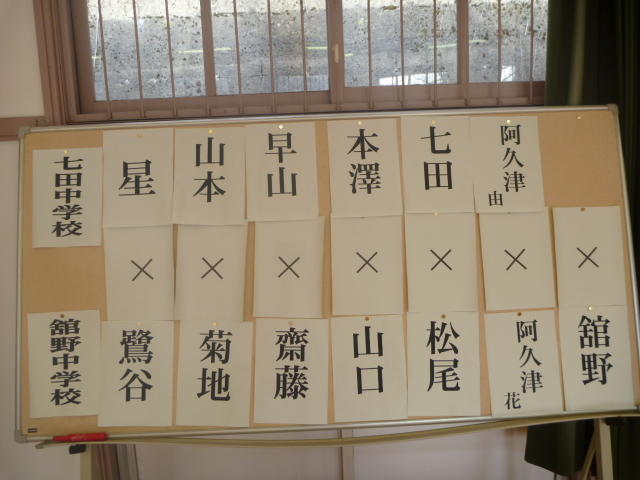 七田中学校
星
山本
早山
本澤
七田
阿久津 由
×
×
×
×
×
×
×
舘野中学校
鷺谷
菊地
齋藤
山口
松尾
阿久津 花
舘野